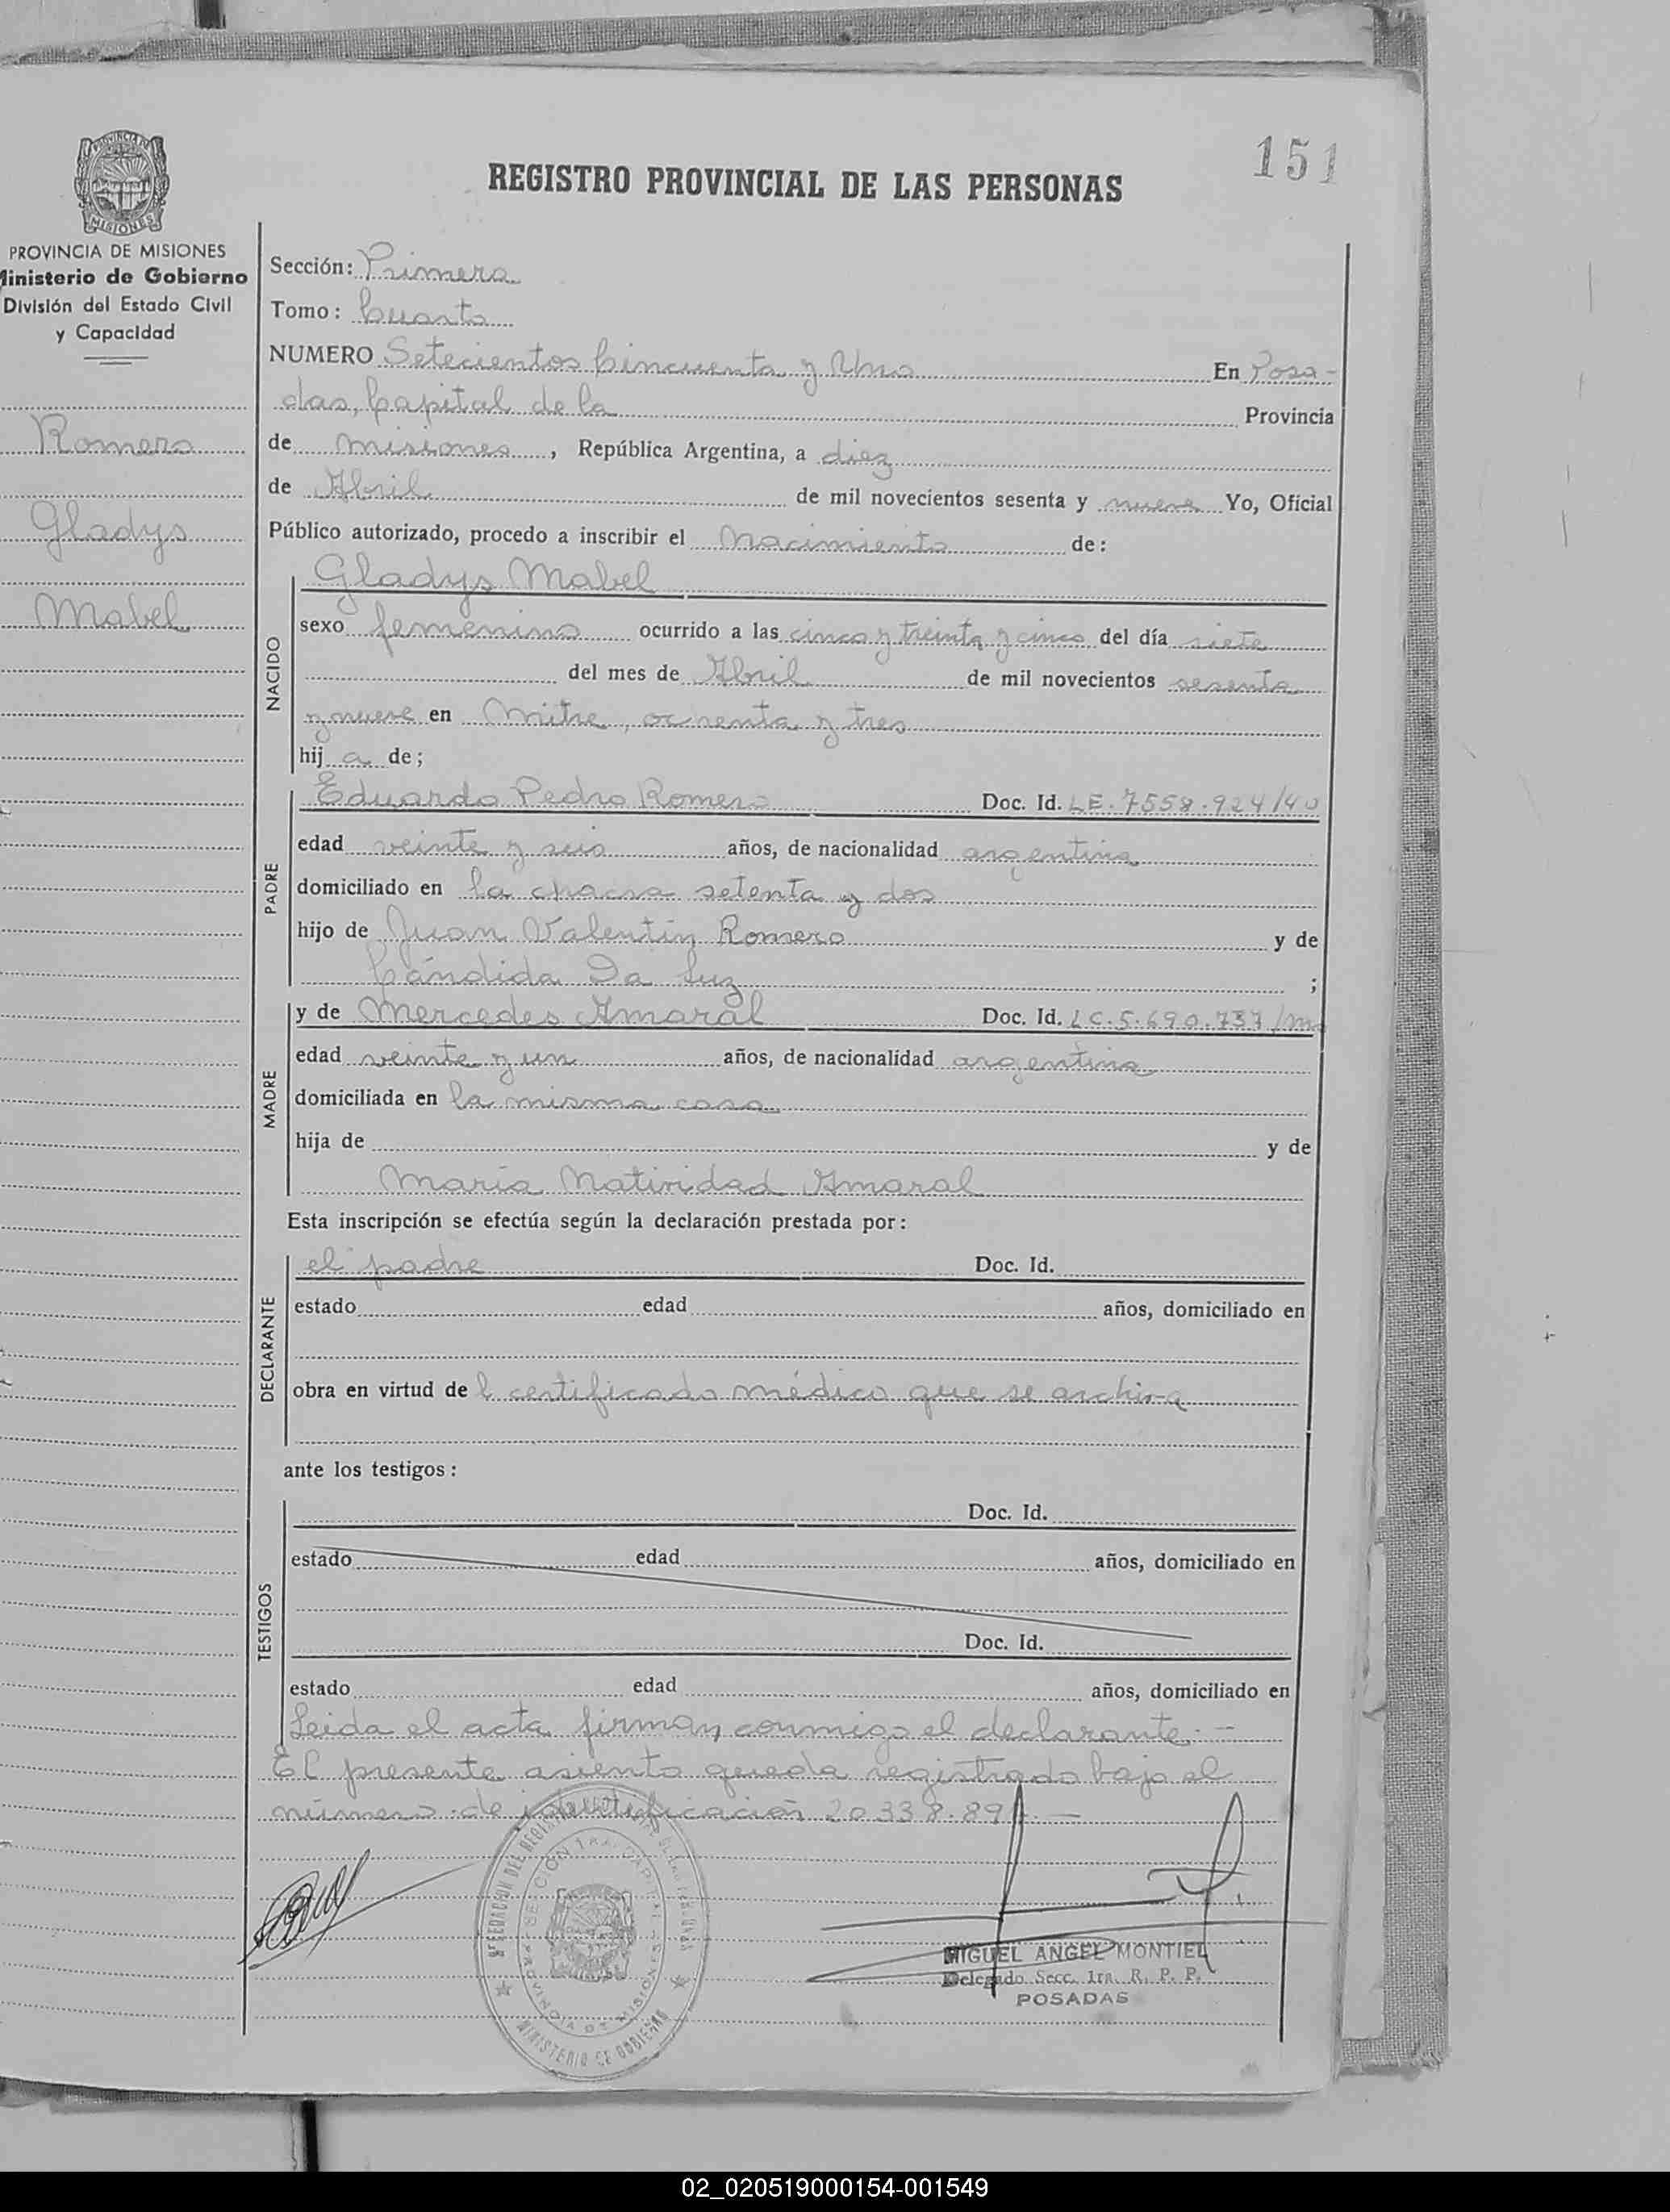 151
REGISTRO PROVINCIAL DE LAS PERSONAS
PROVINCIA DE MISIONES
Ministerio de Gobierno
División del Estado Civil
y Capacidad
Romero
Gladys
Mabel
Sección: Primera
Tomo: Cuarto
NUMERO Setecientos Cincuenta y Uno En Posa-
das, Capital de la Provincia
de misiones, República Argentina, a diez
de Abril de mil novecientos sesenta y nueve Yo, Oficial
Público autorizado, procedo a inscribir el nacimiento de:
NACIDO
Gladys Mabel
sexo femenino ocurrido a las cinco y treinta y cinco del día siete
del mes de Abril de mil novecientos sesenta
y nueve en Mitre, ochenta y tres
hija de;
PADRE
Eduardo Pedro Romero Doc. Id. LE. 7558.924/40
edad veinte y seis años, de nacionalidad argentina
domiciliado en la chacra setenta y dos
hijo de Juan Valentin Romero y de
Cándida Da Luz ;
MADRE
y de Mercedes Amaral Doc. Id. LC. 5.690.737/
edad veinte y un años, de nacionalidad argentina
domiciliada en la misma casa
hija de y de
María Natividad Amaral
Esta inscripción se efectúa según la declaración prestada por:
DECLARANTE
el padre Doc. Id.
estado edad años, domiciliado en
obra en virtud de l certificado médico que se archiva
ante los testigos:
TESTIGOS
Doc. Id.
estado edad años, domiciliado en
Doc. Id.
estado edad años, domiciliado en
Leida el acta firman, conmigo el declarante.-
El presente asiento queda registrado bajo el
número de identificación 20.338.89
MIGUEL ANGEL MONTIEL
Delegado Secc. 1ra. R. P. P.
POSADAS
PROVINCIA DE MISIONES
MINISTERIO DE GOBIERNO
02_020519000154-001549